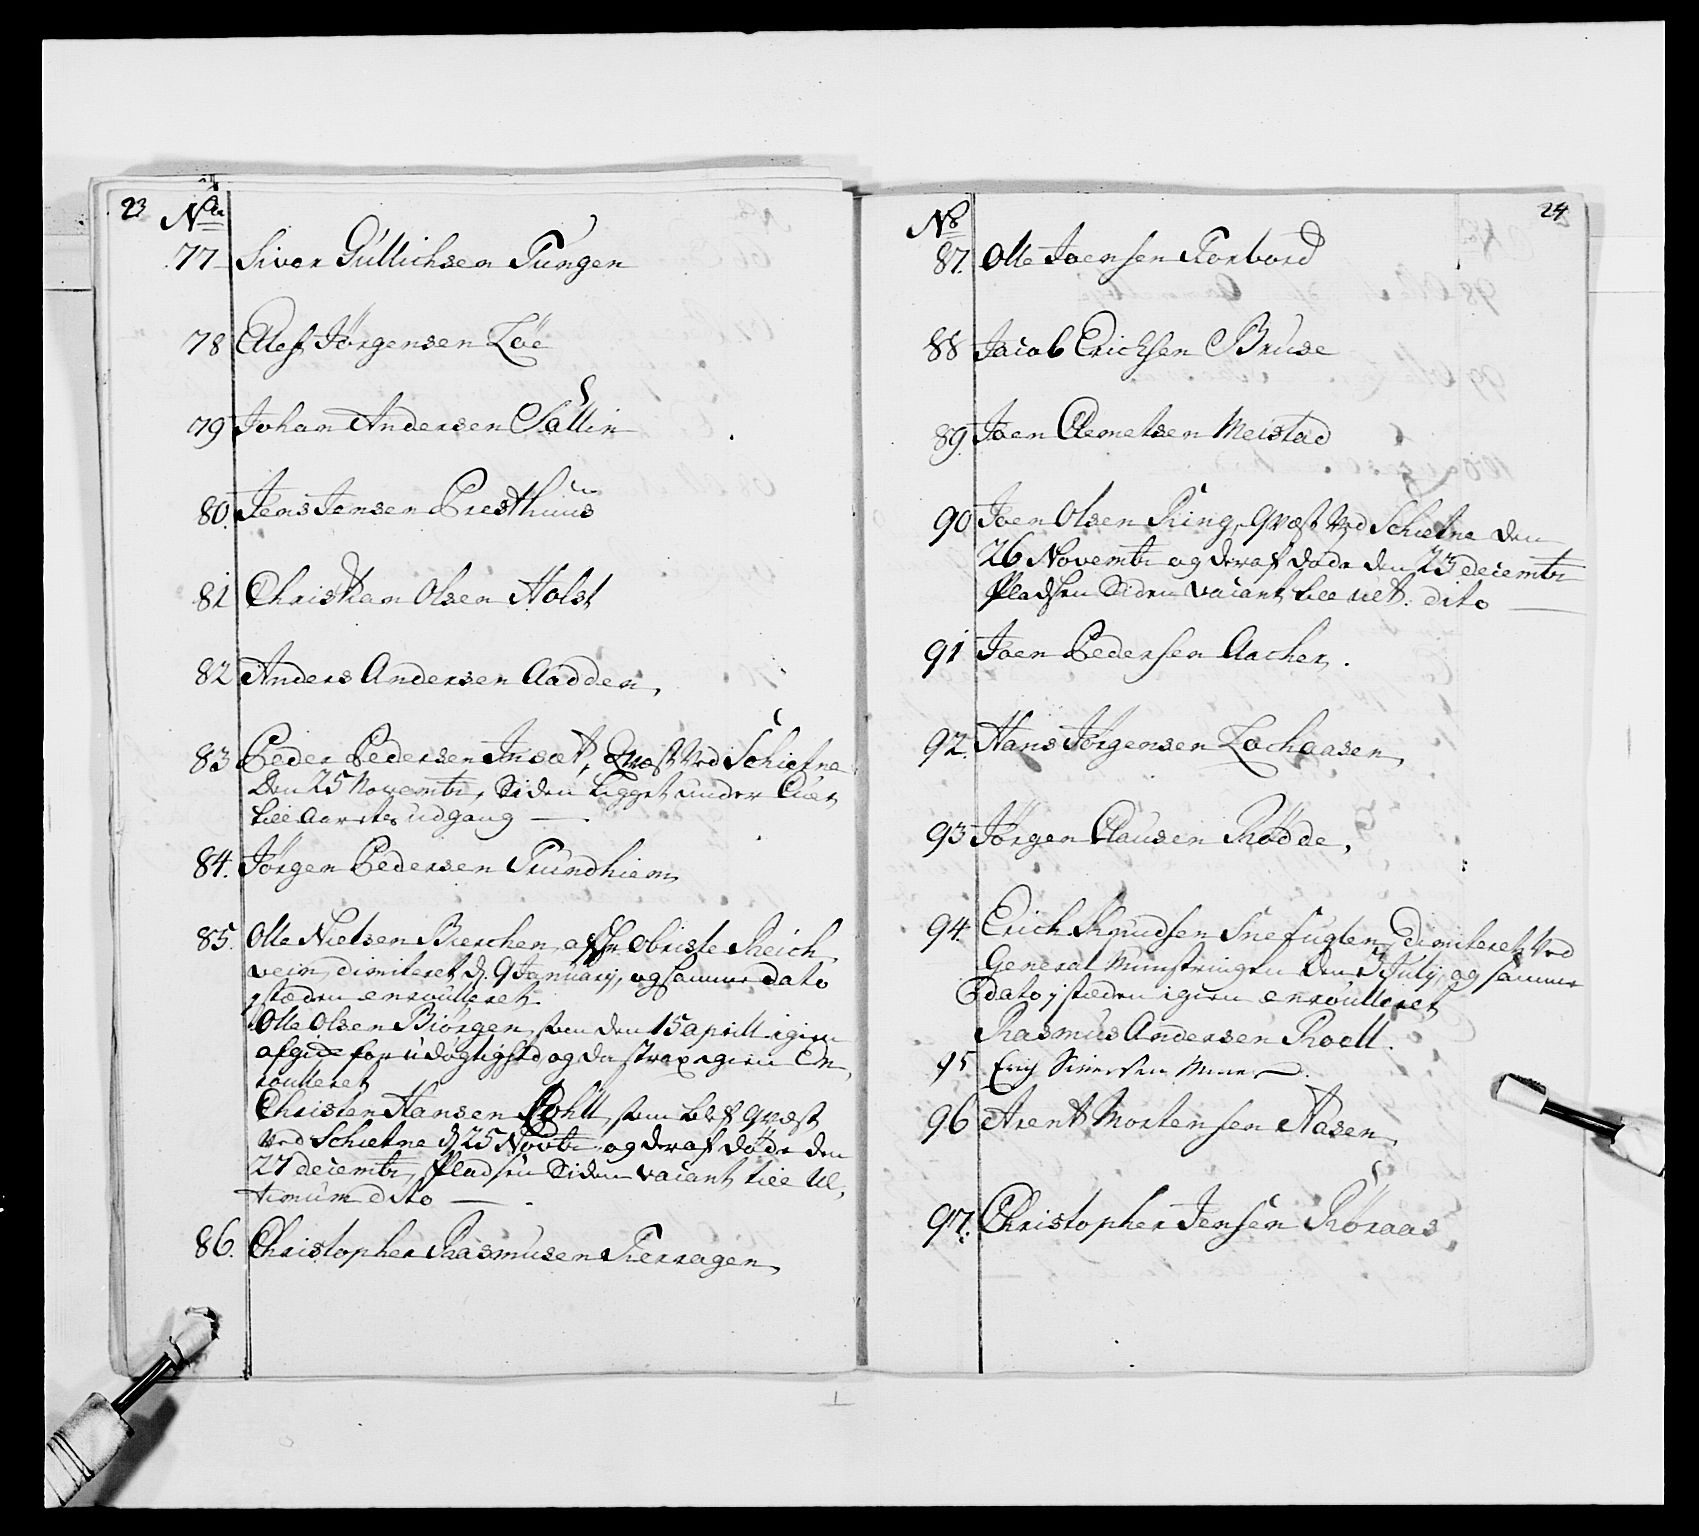 23
No
77 Siver Gullichsen Tungen
78 Elef Jörgensen Löe
79 Johan Andersen Sallin
80. Jens Jensen Presthuus
81 Christian Olsen Holst
82 Anders Andersen Aadden,
83 Peder Pedersen Insæt, Qvæst Ved Schietne
Den 25 Novembr, Siden Ligget under Cuer
till Aarets udgang
84. Jörgen Pedersen Trundhiem
85. Olle Nielsen Bierchen, af Hr. Obriste Reich
vein dimiteret d. 9 January, og samme dato
j stæden enroulleret
Olle Olsen Biörgen, som den 15 aprill igien
afgich for udögtighed, og da strax igien En,
roulleret
Christen Hansen Pohll, som blef qvæst
Ved Schietne d 25 Novbr og deraf döde den
27 decembr, Pladsen Siden vacant till Ul,
timum dito
86. Christopher Rasmusen Terragen,
24
No
87. Olle Joensen Torbord
88 Jacob Erichsen Bruse
89. Joen Clemetsen Meistad
90 Joen Olsen Ring, Qvæst Ved Schietne den
26 Novembr og deraf döde den 23 decembr
Pladsen Siden vacant till ult: dito
91 Joen Pedersen Aacher.
92. Hans Jörgensen Lochaasen,
93 Jörgen Clausen Rödde,
94. Erich Knudsen Snefuglen, Dimiteret Ved
General Munstringen den 3 July, og samme
dato j stæden igien enroulleret
Rasmus Andersen Roell.
95 Siversen
96 Arent Mortensen Aasen,
97. Christopher Jensen Röraas,